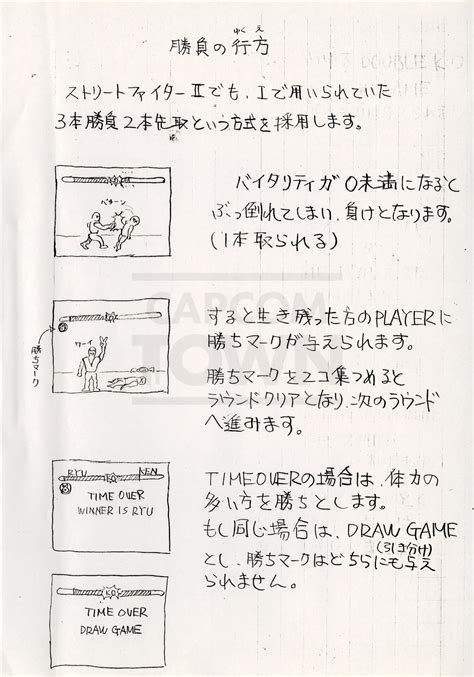 勝負の行方
ゆくえ
ストリートファイターⅡでも、Ⅰで用いられていた
3本勝負2本先取という方式を採用します。
バターン
バイタリティが0未満になると
ぶっ倒れてしまい、負けとなります。
(1本取られる)
CAPCOM
TOWN
勝ちマーク
ワーイ
すると生き残った方のPLAYERに
勝ちマークが与えられます。
勝ちマークを2コ集つめると
ラウンドクリアとなり、次のラウンド
へ進みます。
RYU KEN
TIME OVER
WINNER IS RYU
TIMEOVERの場合は、体力の
多い方を勝ちとします。
もし同じ場合は、DRAW GAME
(引き分け)
とし、勝ちマークはどちらにも与え
られません。
KO
TIME OVER
DRAW GAME